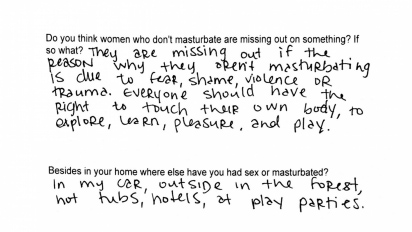 Do you think women who don't masturbate are missing out on something? If
so what? They are missing out if the
reason why they aren't masturbating
is due to fear, shame, violence or
trauma. Everyone should have the
right to touch their own body, to
explore, learn, pleasure, and play.
Besides in your home where else have you had sex or masturbated?
In my car, outside in the forest,
hot tubs, hotels, at play parties.